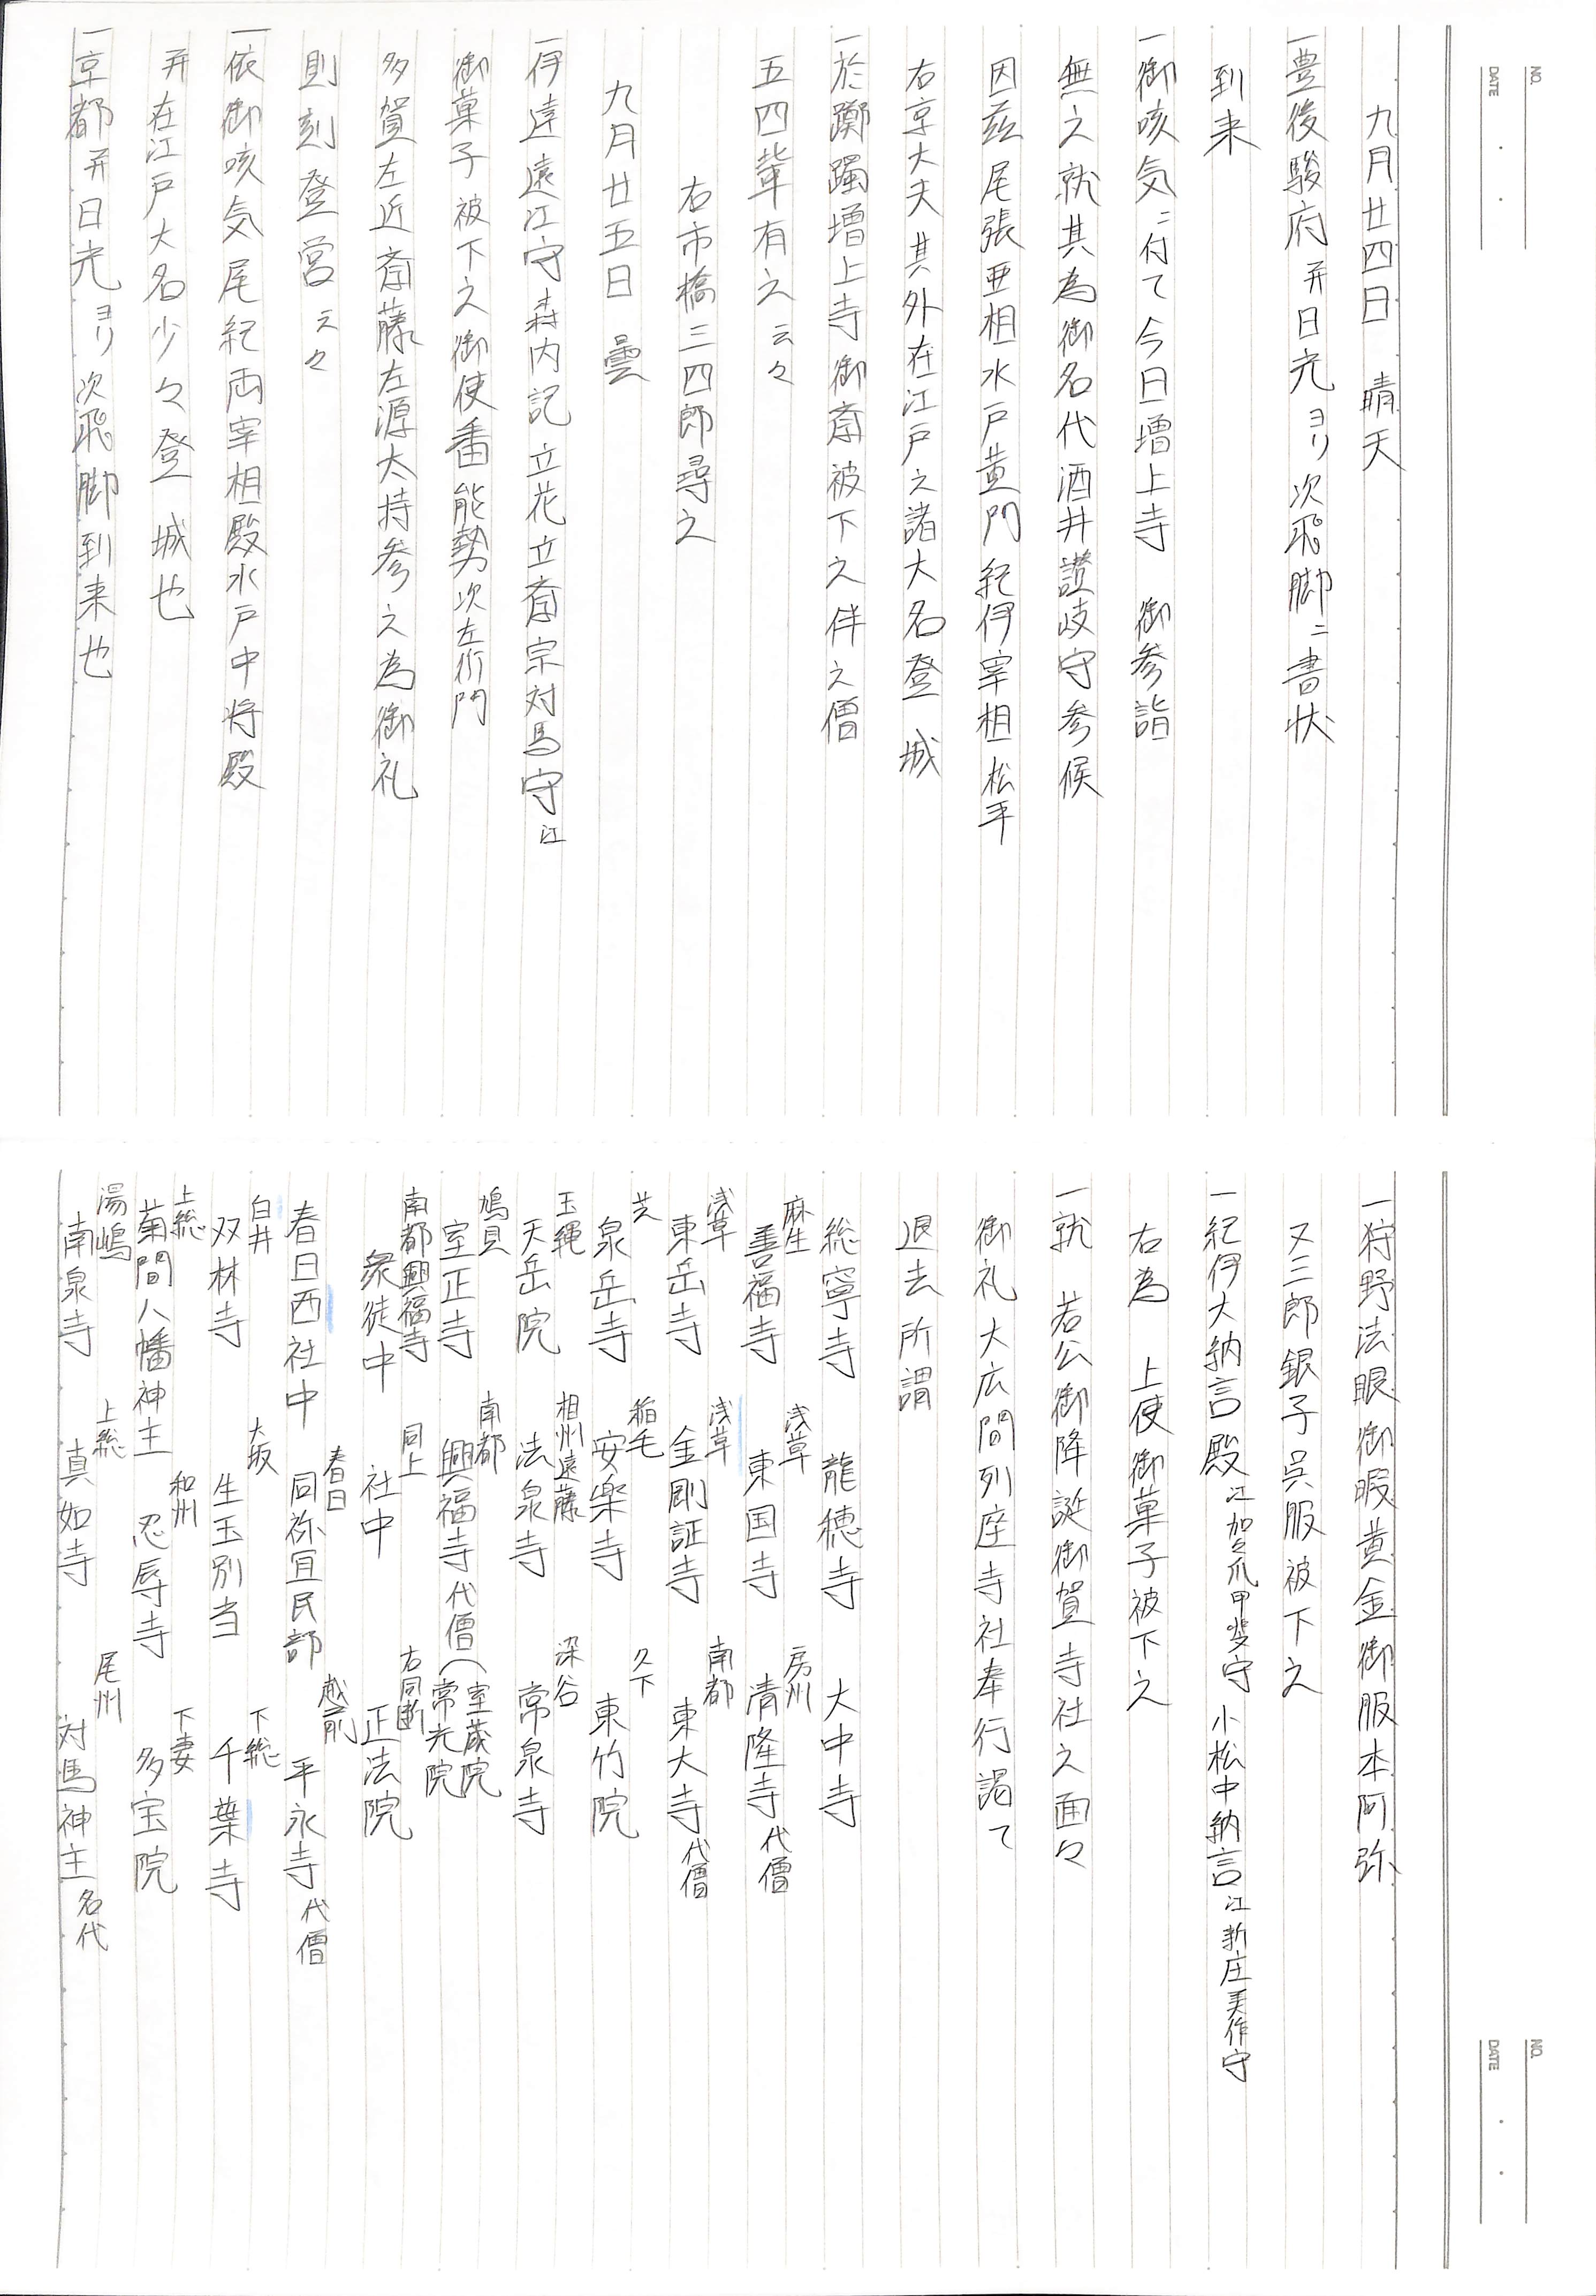 NO.
DATE
九月廿四日　晴天
一豊後駿府并日光ヨリ次飛脚ニ書状
到来
一御咳気ニ付て今日増上寺　御参詣
無之就其為御名代酒井讃岐守参候
因茲尾張亜相水戸黄門紀伊宰相松平
右京大夫其外在江戸之諸大名登　城
一於躑躅増上寺御斎被下之伴之僧
五四輩有之云々
右市橋三四郎尋之
九月廿五日　曇
一伊達遠江守森内記立花立斎宗対馬守江
御菓子被下之御使番能勢次左衛門
多賀左近斎藤左源太持参之為御礼
則刻登営云々
一依御咳気尾紀両宰相殿水戸中将殿
并在江戸大名少々登　城也
一京都并日光ヨリ次飛脚到来也
NO.
DATE
一狩野法眼御暇黄金御服本阿弥
又三郎銀子呉服被下之
一紀伊大納言殿江加々爪甲斐守　小松中納言江新庄美作守
右為　上使御菓子被下之
一就　若公御降誕御賀寺社之面々
御礼大広間列座寺社奉行謁て
退去所謂
総寧寺　龍穏寺　大中寺
麻生善福寺　浅草東国寺　房州清隆寺代僧
浅草東岳寺　浅草金剛証寺　南都東大寺代僧
芝泉岳寺　稲毛安楽寺　久下東竹院
玉縄天岳院　相州遠藤法泉寺　深谷常泉寺
鳩貝室正寺　南都興福寺代僧（室蔵院　常光院
南都興福寺衆徒中　同上社中　右同断正法院
春日西社中　春日同祢宜民部　越前平永寺代僧
白井双林寺　大坂生玉別当　下総千葉寺
上総菊間八幡神主　和州忍辱寺　下妻多宝院
湯嶋南泉寺　上総真如寺　尾州対馬神主名代